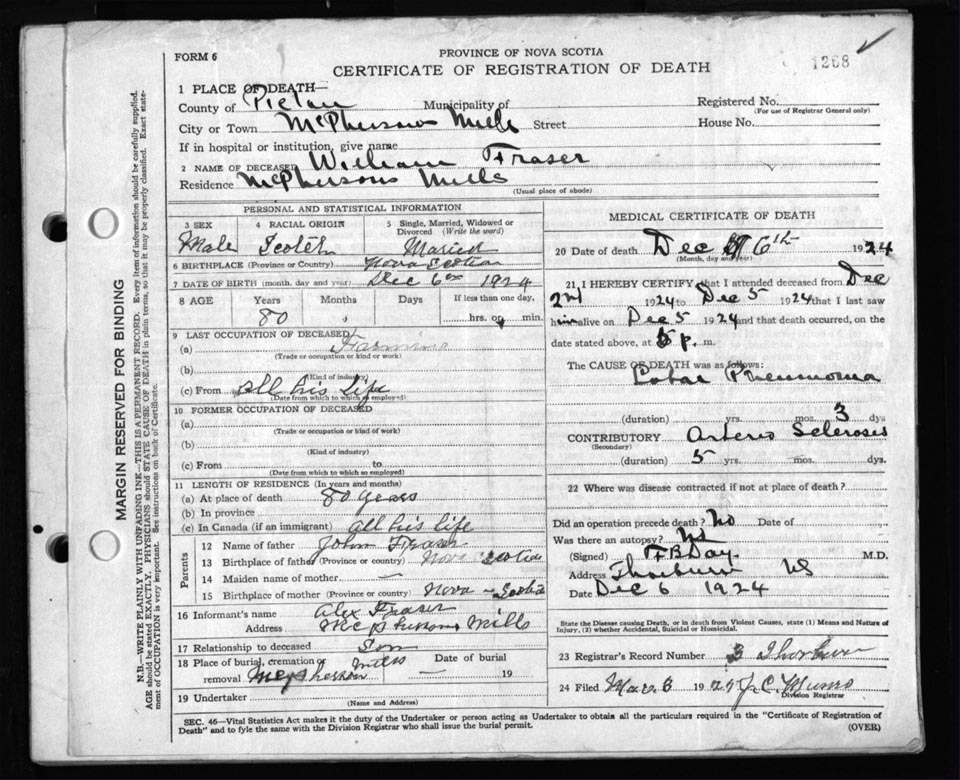 FORM 6
PROVINCE OF NOVA SCOTIA
CERTIFICATE OF REGISTRATION OF DEATH
1268
1 PLACE OF DEATH—
County of Pictou Municipality of
Registered No.
(For use of Registrar General only)
City or Town McPhersons Mills Street
House No.
If in hospital or institution, give name
2 NAME OF DECEASED William Fraser
Residence McPhersons Mills
(Usual place of abode)
PERSONAL AND STATISTICAL INFORMATION
3 SEX 4 RACIAL ORIGIN 5 Single, Married, Widowed or Divorced (Write the word)
Male Scotch Maried
6 BIRTHPLACE (Province or Country) Nova Scotia
7 DATE OF BIRTH (month, day and year) Dec 6th 1924
8 AGE Years Months Days If less than one day,
80 hrs. or min.
9 LAST OCCUPATION OF DECEASED
(a) Farming
(Trade or occupation or kind of work)
(b)
(Kind of industry)
(c) From all his life
(Date from which to which so employed)
10 FORMER OCCUPATION OF DECEASED
(a)
(Trade or occupation or kind of work)
(b)
(Kind of industry)
(c) From to
(Date from which to which so employed)
11 LENGTH OF RESIDENCE (In years and months)
(a) At place of death 80 years
(b) In province
(c) In Canada (if an immigrant) all his life
Parents
12 Name of father John Fraser
13 Birthplace of father (Province or country) Nova Scotia
14 Maiden name of mother —
15 Birthplace of mother (Province or country) Nova Scotia
16 Informant's name Alex Fraser
Address McPhersons Mills
17 Relationship to deceased Son
18 Place of burial, cremation or removal McPherson Mills Date of burial — 19
19 Undertaker
(Name and Address)
MEDICAL CERTIFICATE OF DEATH
20 Date of death Dec 6th 1924
(Month, day and year)
21 I HEREBY CERTIFY that I attended deceased from Dec
2nd 1924 to Dec 5 1924 that I last saw
him alive on Dec 5 1924 and that death occurred, on the
date stated above, at p. m.
The CAUSE OF DEATH was as follows:
Lobar Pneumonia
(duration) yrs. mos. 3 dys
CONTRIBUTORY Arterio Sclerosis
(Secondary)
(duration) 5 yrs. mos. dys.
22 Where was disease contracted if not at place of death?
Did an operation precede death? No Date of
Was there an autopsy? No
(Signed) F B Day M.D.
Address Thorburn NS
Date Dec 6 1924
State the Disease causing Death, or in death from Violent Causes, state (1) Means and Nature of
Injury, (2) whether Accidental, Suicidal or Homicidal.
23 Registrar's Record Number 3 Thorburn
24 Filed Mar 3 1925 J C Munro
Division Registrar
SEC. 46—Vital Statistics Act makes it the duty of the Undertaker or person acting as Undertaker to obtain all the particulars required in the "Certificate of Registration of
Death" and to fyle the same with the Division Registrar who shall issue the burial permit.
(OVER)
MARGIN RESERVED FOR BINDING
N.B.—WRITE PLAINLY WITH UNFADING INK—THIS IS A PERMANENT RECORD. Every item of information should be carefully supplied.
AGE should be stated EXACTLY. PHYSICIANS should STATE CAUSE OF DEATH in plain terms, so that it may be properly classified. Exact state-
ment of OCCUPATION is very important. See instructions on back of Certificate.